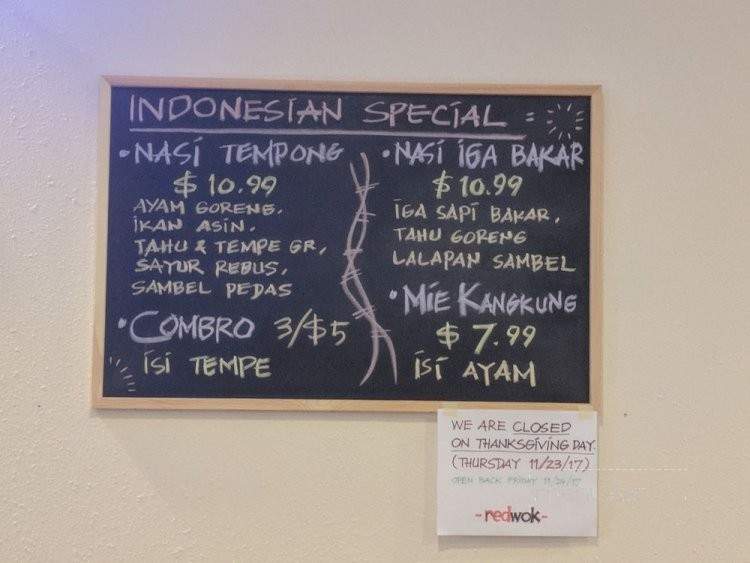 INDONESIAN SPECIAL =
• NASI TEMPONG
$10.99
AYAM GORENG,
IKAN ASIN,
TAHU & TEMPE GR,
SAYUR REBUS,
SAMBEL PEDAS
• COMBRO 3/$5
ISI TEMPE
• NASI IGA BAKAR
$10.99
IGA SAPI BAKAR,
TAHU GORENG
LALAPAN SAMBEL
• MIE KANGKUNG
$7.99
ISI AYAM
WE ARE CLOSED
ON THANKSGIVING DAY.
(THURSDAY 11/23/17)
OPEN BACK FRIDAY 11/24/17
-redwok-